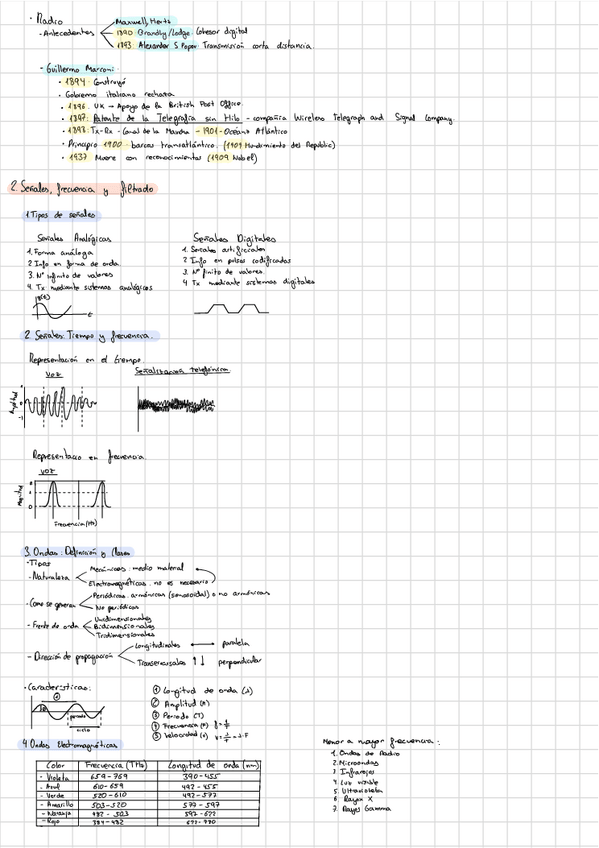 · Radio
- Antecedentes
Maxwell, Hertz
1890: Brandly/Lodge: Cohesor digital
1893: Alexander S Popov: Transmisión corta distancia
- Guillermo Marconi:
· 1894: Construyó
· Gobierno italiano rechaza
· 1896: UK → Apoyo de la British Post Office.
· 1897: Patente de la Telegrafía sin Hilo - compañía Wireless Telegraph and Signal Company.
· 1897: Tx-Rx - Canal de la Mancha - 1901 - Océano Atlántico
· Principio 1900: barcos transatlántico. (1909 Hundimiento del Republic)
· 1937 Muere con reconocimientos (1909 Nobel)
2. Señales, frecuencia y filtrado
1. Tipos de señales
Señales Analógicas
1. Forma análoga
2. Info en forma de onda
3. Nº infinito de valores
4. Tx mediante sistemas analógicos
t
Señales Digitales
1. Señales artificiales
2. Info en pulsos codificados
3. Nº finito de valores
4. Tx mediante sistemas digitales
2. Señales: Tiempo y frecuencia.
Representación en el tiempo.
VOZ
Amplitud
Señalización telefónica
Representacio en frecuencia
VOZ
Magnitud
Frecuencia (Hz)
3. Ondas: Definición y clases
· Tipos
- Naturaleza
Mecánicas: medio material
Electromagnéticas: no es necesario
- Como se generan
Periódicas: armónicas (senosoidal) o no armónicas
No periódicas
- Frente de onda
Unidimensionales
Bidimensionales
Tridimensionales
- Dirección de propagación
Longitudinales paralela
Transversales ↑↓ perpendicular
· Características:
periodo
ciclo
① Longitud de onda (λ)
② Amplitud (A)
③ Periodo (T)
④ Frecuencia (f) f = 1/T
⑤ Velocidad (v) v = λ/T = λ·f
4. Ondas Electromagnéticas
Color Frecuencia (THz) Longitud de onda (nm)
- Violeta 659-769 390-455
- Azul 610-659 455-492
- Verde 520-610 492-577
- Amarillo 503-520 577-597
- Naranja 482-503 597-622
- Rojo 384-482 622-780
Menor a mayor frecuencia:
1. Ondas de Radio
2. Microondas
3. Infrarojos
4. Luz visible
5. Ultravioleta
6. Rayos X
7. Rayos Gamma